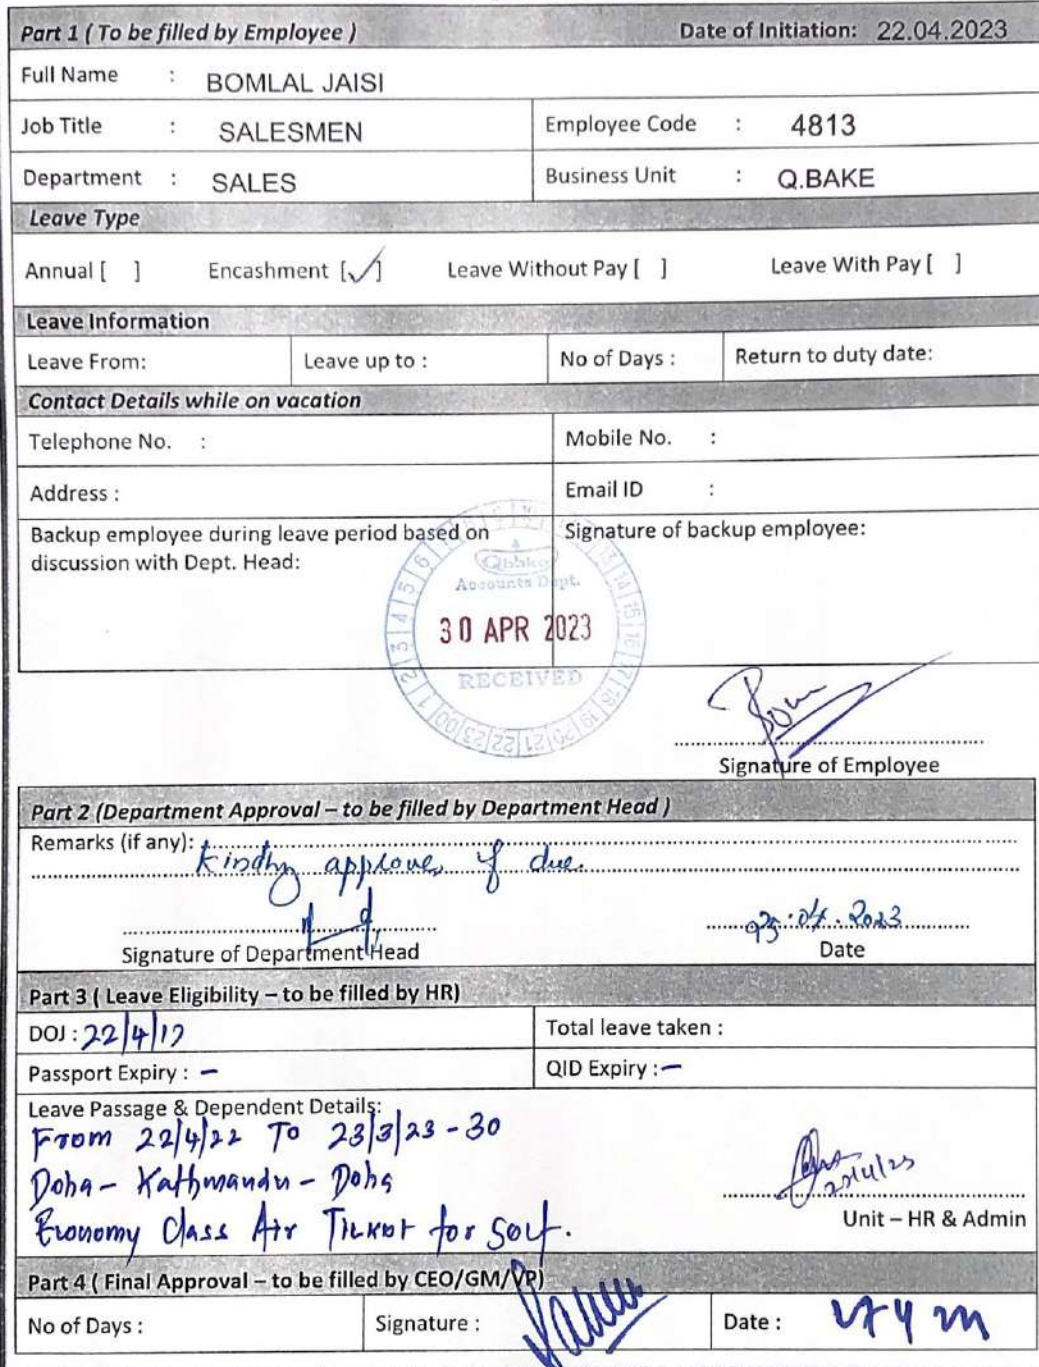 Part 1 ( To be filled by Employee ) Date of Initiation: 22.04.2023
Full Name : BOMLAL JAISI
Job Title : SALESMEN Employee Code : 4813
Department : SALES Business Unit : Q.BAKE
Leave Type
Annual [ ] Encashment [✓] Leave Without Pay [ ] Leave With Pay [ ]
Leave Information
Leave From: Leave up to : No of Days : Return to duty date:
Contact Details while on vacation
Telephone No. : Mobile No. :
Address : Email ID :
Backup employee during leave period based on discussion with Dept. Head: Signature of backup employee:
Accounts Dept.
30 APR 2023
RECEIVED
Signature of Employee
Part 2 (Department Approval – to be filled by Department Head )
Remarks (if any):
Kindly approve, if due.
.04.2023
Signature of Department Head Date
Part 3 ( Leave Eligibility – to be filled by HR)
DOJ : 22/4/17 Total leave taken :
Passport Expiry : – QID Expiry : –
Leave Passage & Dependent Details:
From 22/4/22 To 23/3/23 - 30
Doha - Kathmandu - Doha
Economy Class Air Ticket for Self.
Unit – HR & Admin
Part 4 ( Final Approval – to be filled by CEO/GM/VP)
No of Days : Signature : Date :